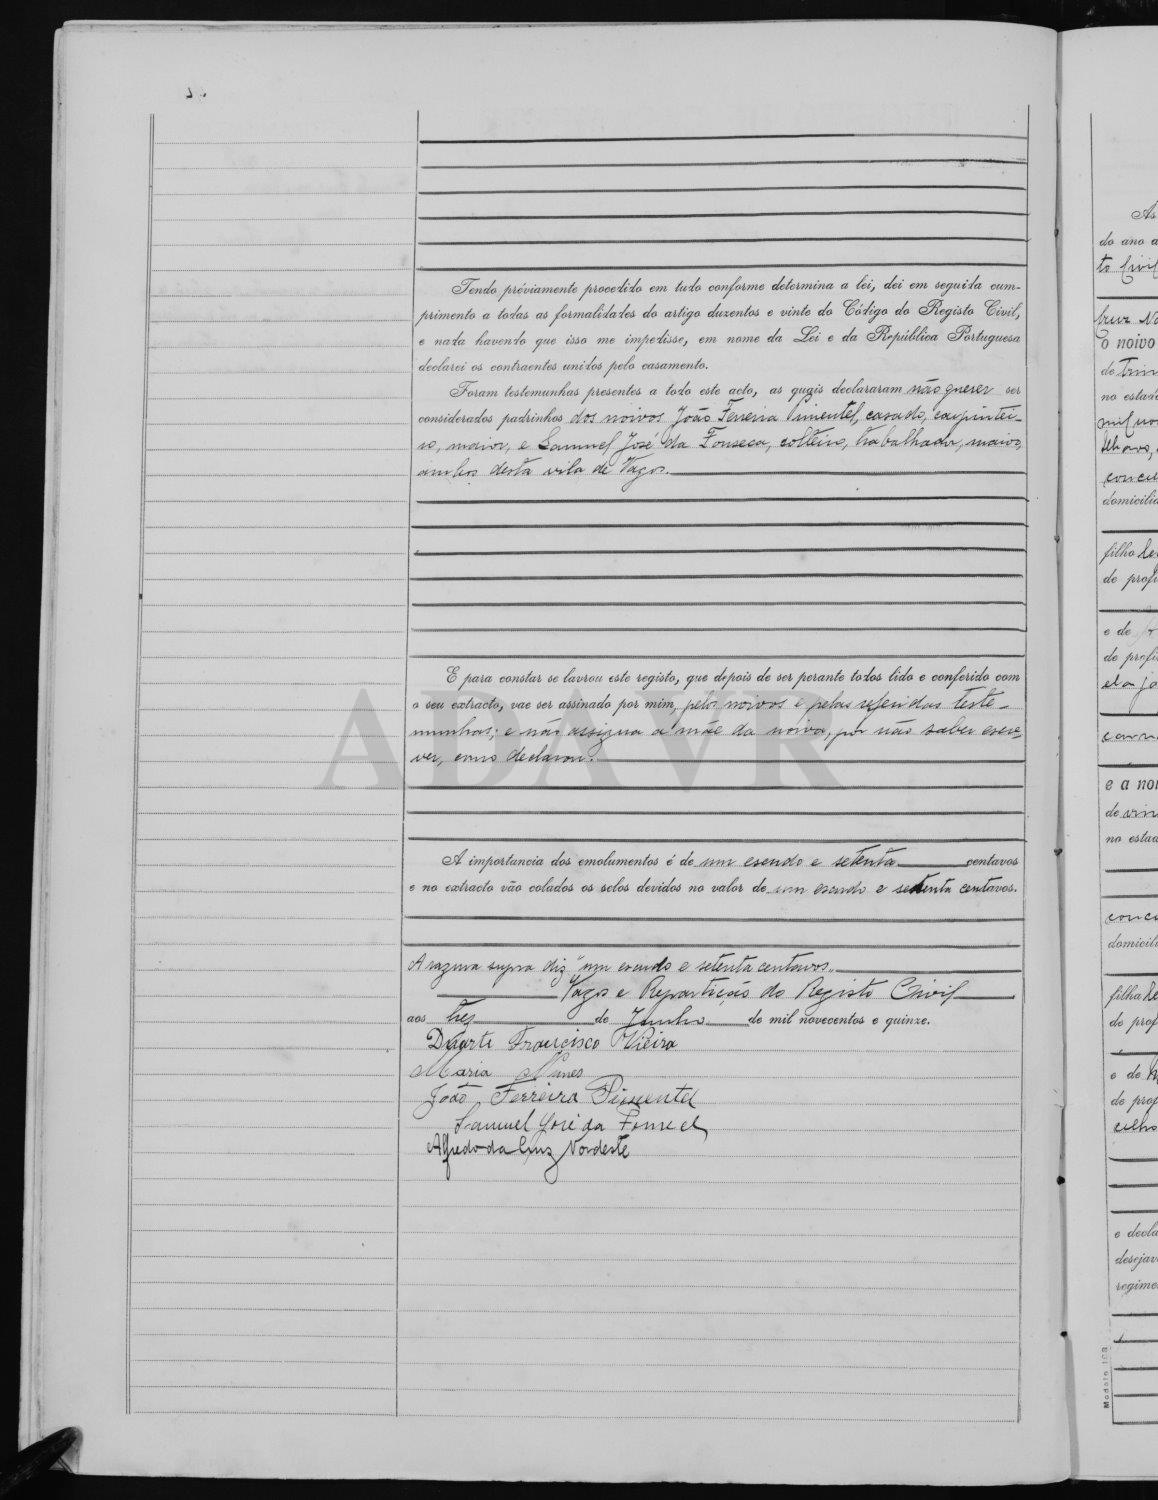 Tendo préviamente procedido em tudo conforme determina a lei, dei em seguida cum-
primento a todas as formalidades do artigo duzentos e vinte do Código do Registo Civil,
e nada havendo que isso me impedisse, em nome da Lei e da República Portuguesa
declarei os contraentes unidos pelo casamento.
Foram testemunhas presentes a todo este acto, as quais declararam não querer ser
considerados padrinhos dos noivos João Ferreira Pimentel, casado, carpintei-
ro, maior, e Samuel José da Fonseca, solteiro, trabalhador, maior,
ambos desta vila de Vagos.
E para constar se lavrou este registo, que depois de ser perante todos lido e conferido com
o seu extracto, vae ser assinado por mim, pelos noivos e pelas referidas teste-
munhas; e não assigna a mãe da noiva, por não saber escre-
ver, como declarou.
ADAVR
A importancia dos emolumentos é de um escudo e setenta centavos
e no extracto vão colados os selos devidos no valor de um escudo e setenta centavos.
A razura supra diz "um escudo e setenta centavos".
Vagos e Repartição do Registo Civil
aos tres de Junho de mil novecentos e quinze.
Duarte Francisco Vieira
Maria Nunes
João Ferreira Pimentel
Samuel José da Fonseca
Alfredo da Cruz Nordeste
As
do ano a
to Civil
o noivo
de trin
no estado
mil nov
conce
domicilia
filho le
de profi
e de
de profi
ela ja
e a noi
de vin
no estad
conce
domicili
filha le
de prof
e de
de prof
e decla
desejav
regime
Modelo 188